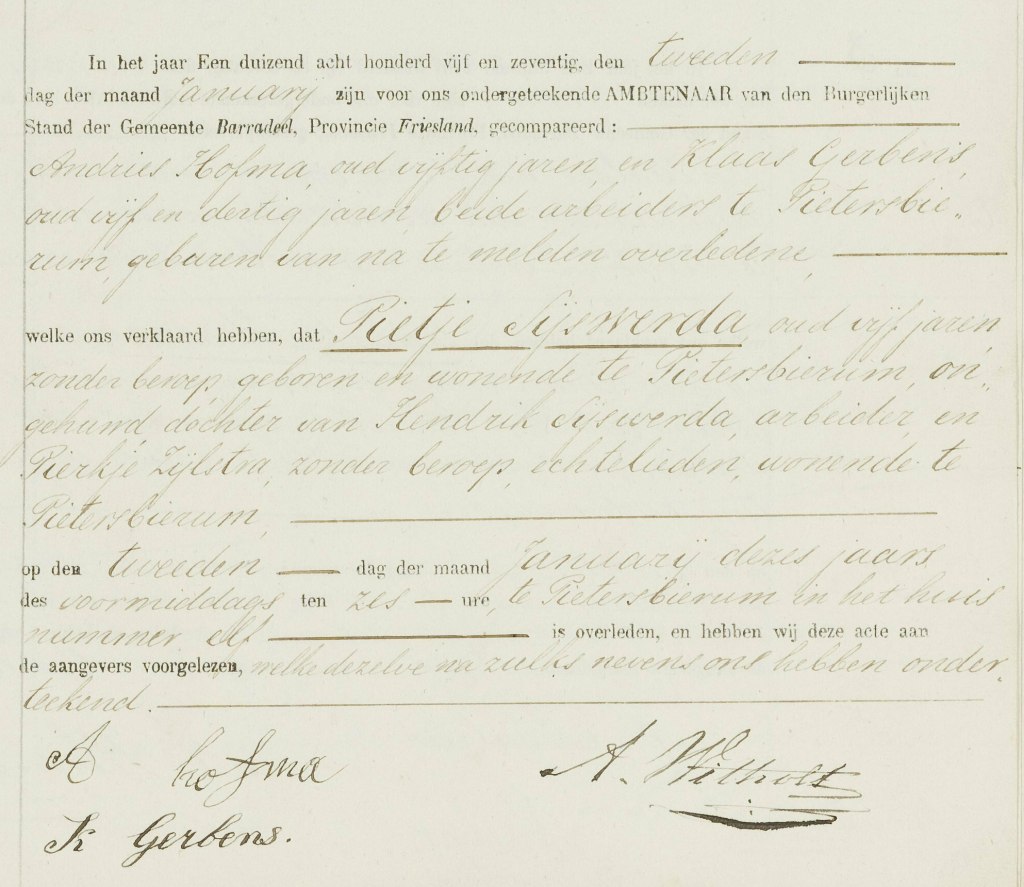 In het jaar Een duizend acht honderd vijf en zeventig, den tweeden
dag der maand Januarij zijn voor ons ondergeteekende AMBTENAAR van den Burgerlijken
Stand der Gemeente Barradeel, Provincie Friesland, gecompareerd :
Andries Hofma, oud vijftig jaren, en Klaas Gerbens,
oud vijf en dertig jaren, beide arbeiders te Pietersbie„
rum, geburen van na te melden overledene,
welke ons verklaard hebben, dat Pietje Sijswerda, oud vijf jaren,
zonder beroep, geboren en wonende te Pietersbierum, on„
gehuwd, dochter van Hendrik Sijswerda, arbeider, en
Pierkje Zijlstra, zonder beroep, echtelieden, wonende te
Pietersbierum,
op den tweeden dag der maand Januarij dezes jaars,
des voormiddags ten zes ure, te Pietersbierum in het huis
nummer elf is overleden, en hebben wij deze acte aan
de aangevers voorgelezen, welke dezelve na zulks nevens ons hebben onder„
teekend.
A hofma A. Witholt
K Gerbens.